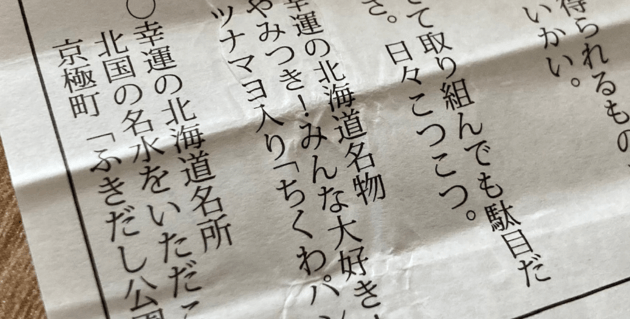 得られるもの
いかい。
て取り組んでも駄目だ
さ。日々こつこつ。
幸運の北海道名物
やみつき！みんな大好き！
ツナマヨ入り「ちくわパン
〇幸運の北海道名所
北国の名水をいただこ
京極町「ふきだし公園